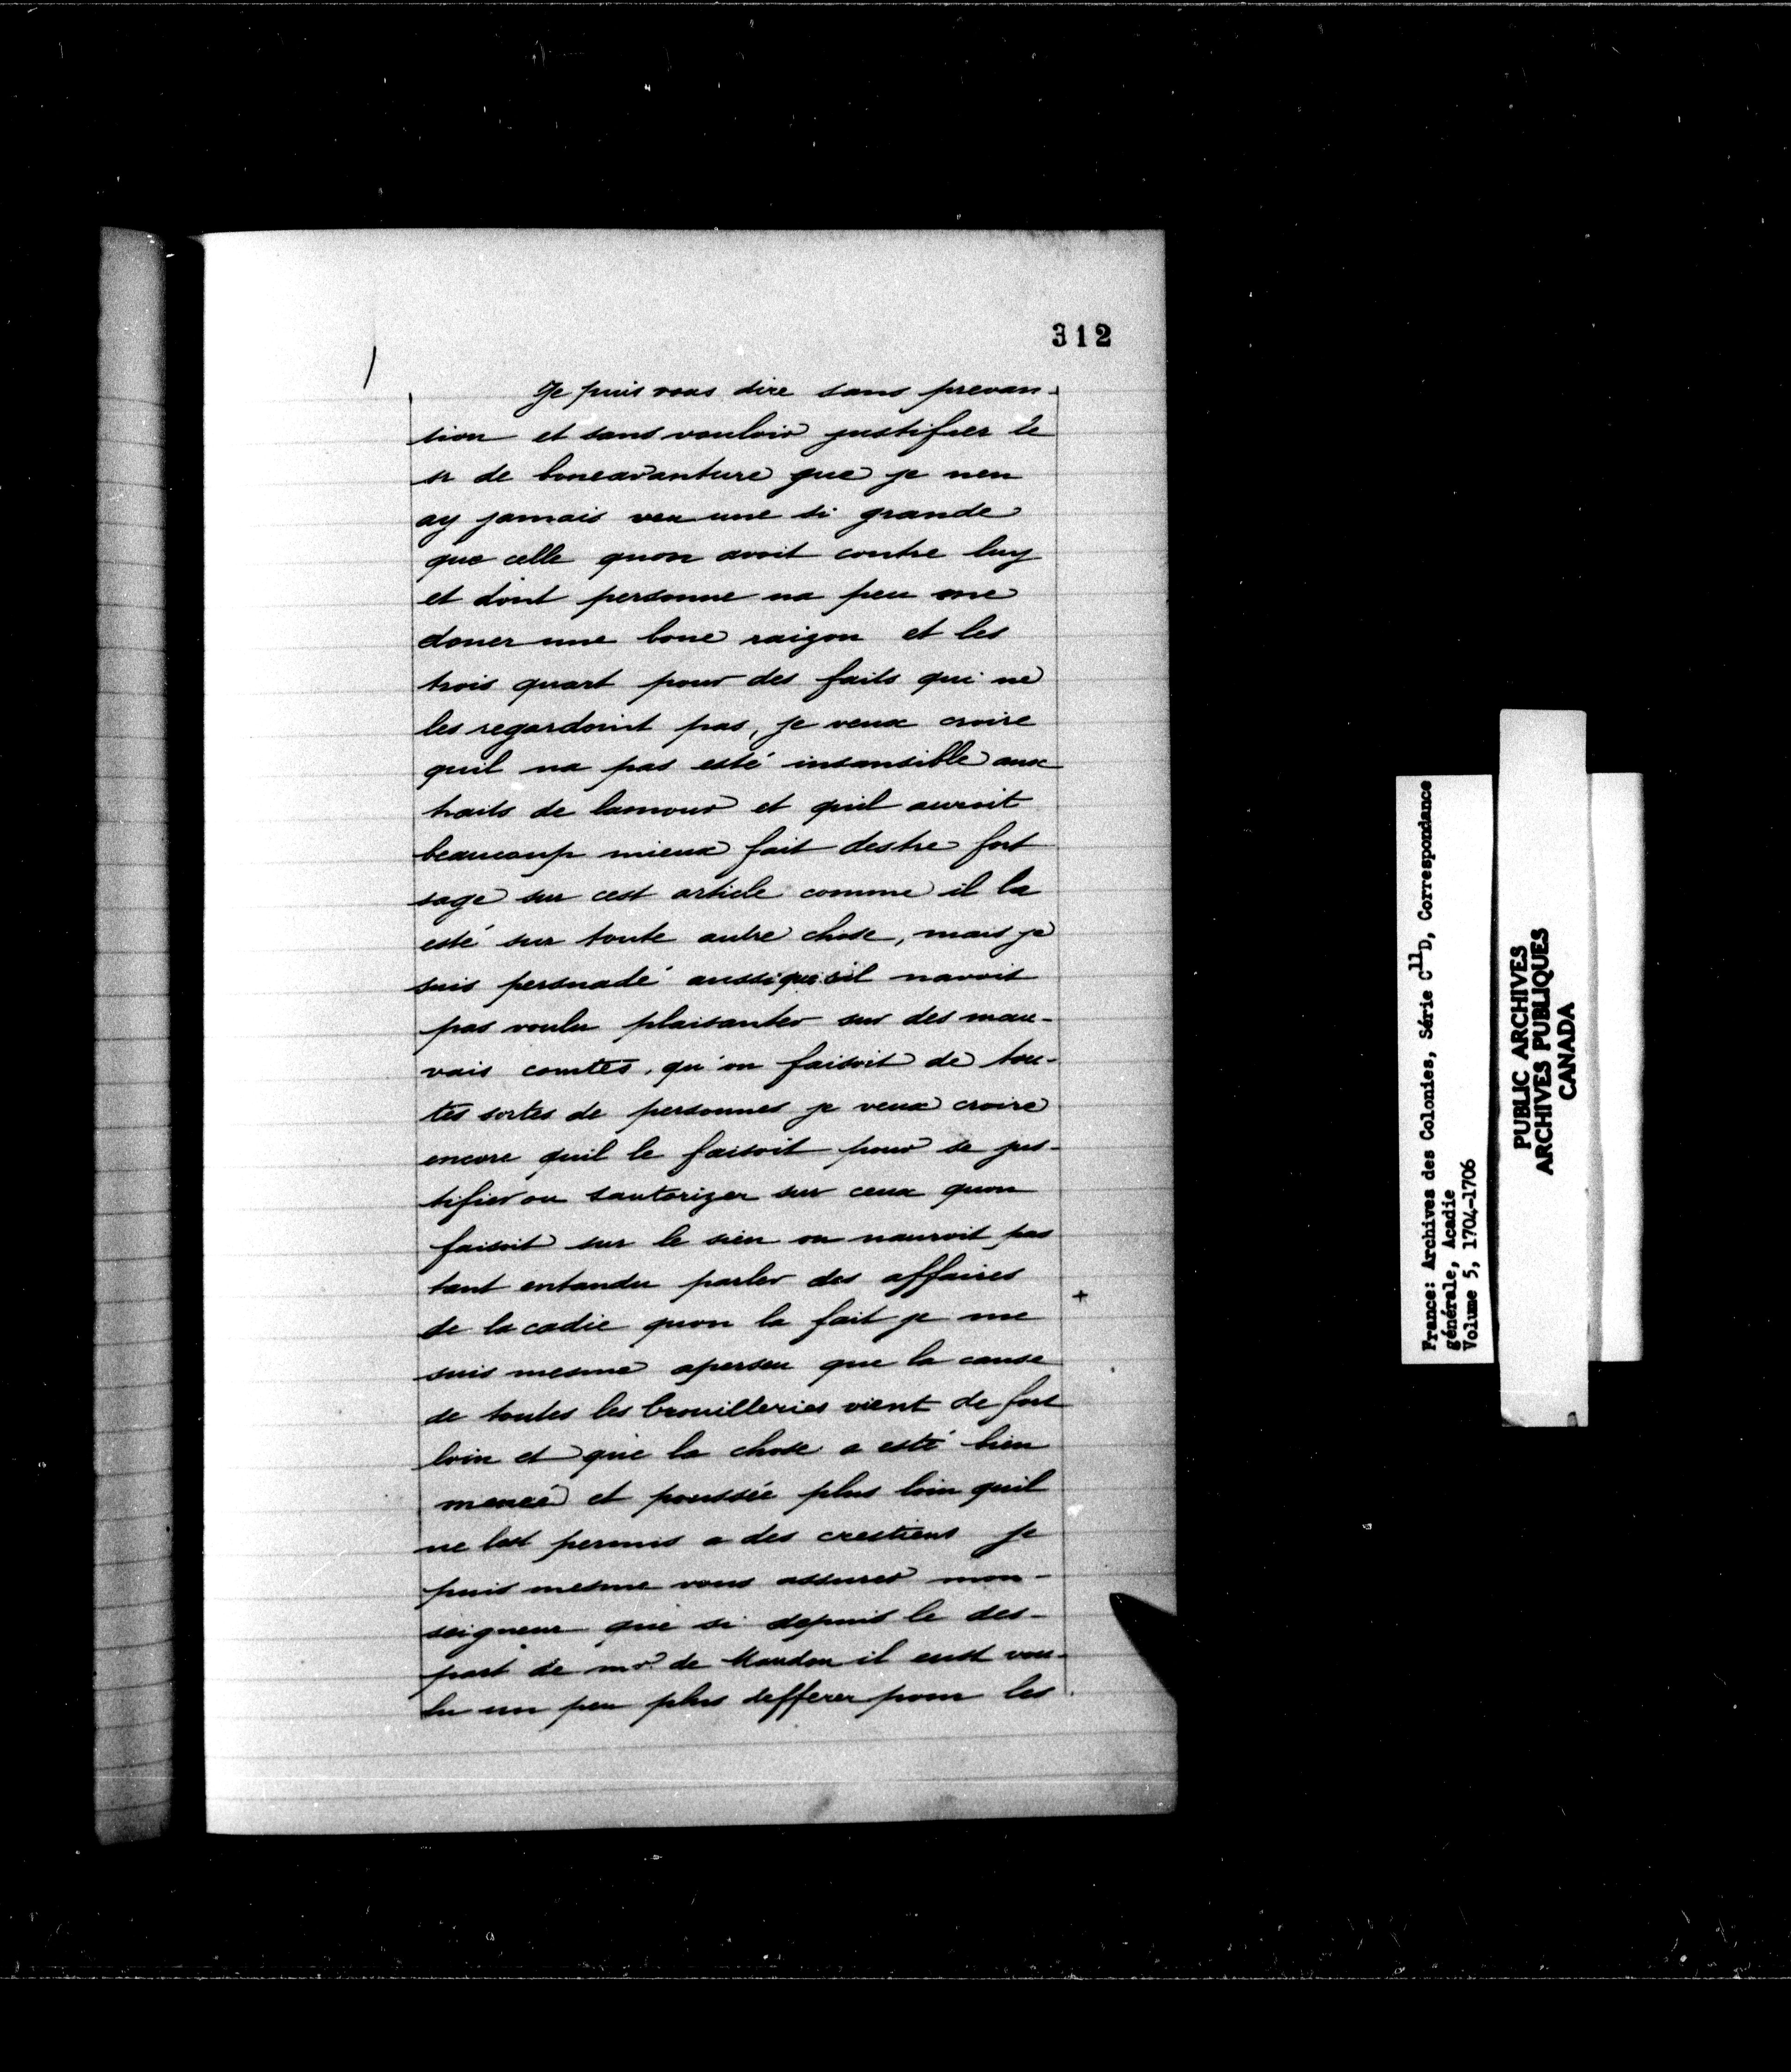 312
Je puis vous dire sans prevan-
sion et sans vouloir justifier le
sr de boneavanture que je nen
ay jamais veu une si grande
que celle quon avoit contre luy
et dont personne na peu me
doner une bone raizon et les
trois quart pour des faits qui ne
les regardoint pas, je veux croire
quil na pas esté insansible aux
traits de lamour et quil auroit
beaucoup mieux fait destre fort
sage sur cest article comme il la
esté sur toute autre chose, mais je
suis persuadé aussi que sil navoit
pas voulu plaisanter sur des mau-
vais comtes, qu'on faisoit de tou-
tes sortes de personnes je veux croire
encore quil le faisoit pour se jus-
tifier ou sautorizer sur ceux quon
faisoit sur le sien on nauroit pas
tant entandu parler des affaires
de lacadie quon la fait je me
suis mesme aperseu que la cause
de toutes les brouilleries vient de fort
loin et que la chose a esté bien
menée et poussée plus loin quil
ne lest permis a des crestiens je
puis mesme vous assurer mon-
seigneur que si depuis le des-
part de mr. de il eust vou-
lu un peu plus defferer pour les
+
France: Archives des Colonies, Série C11D, Correspondance
générale, Acadie
Volume 5, 1704-1706
PUBLIC ARCHIVES
ARCHIVES PUBLIQUES
CANADA